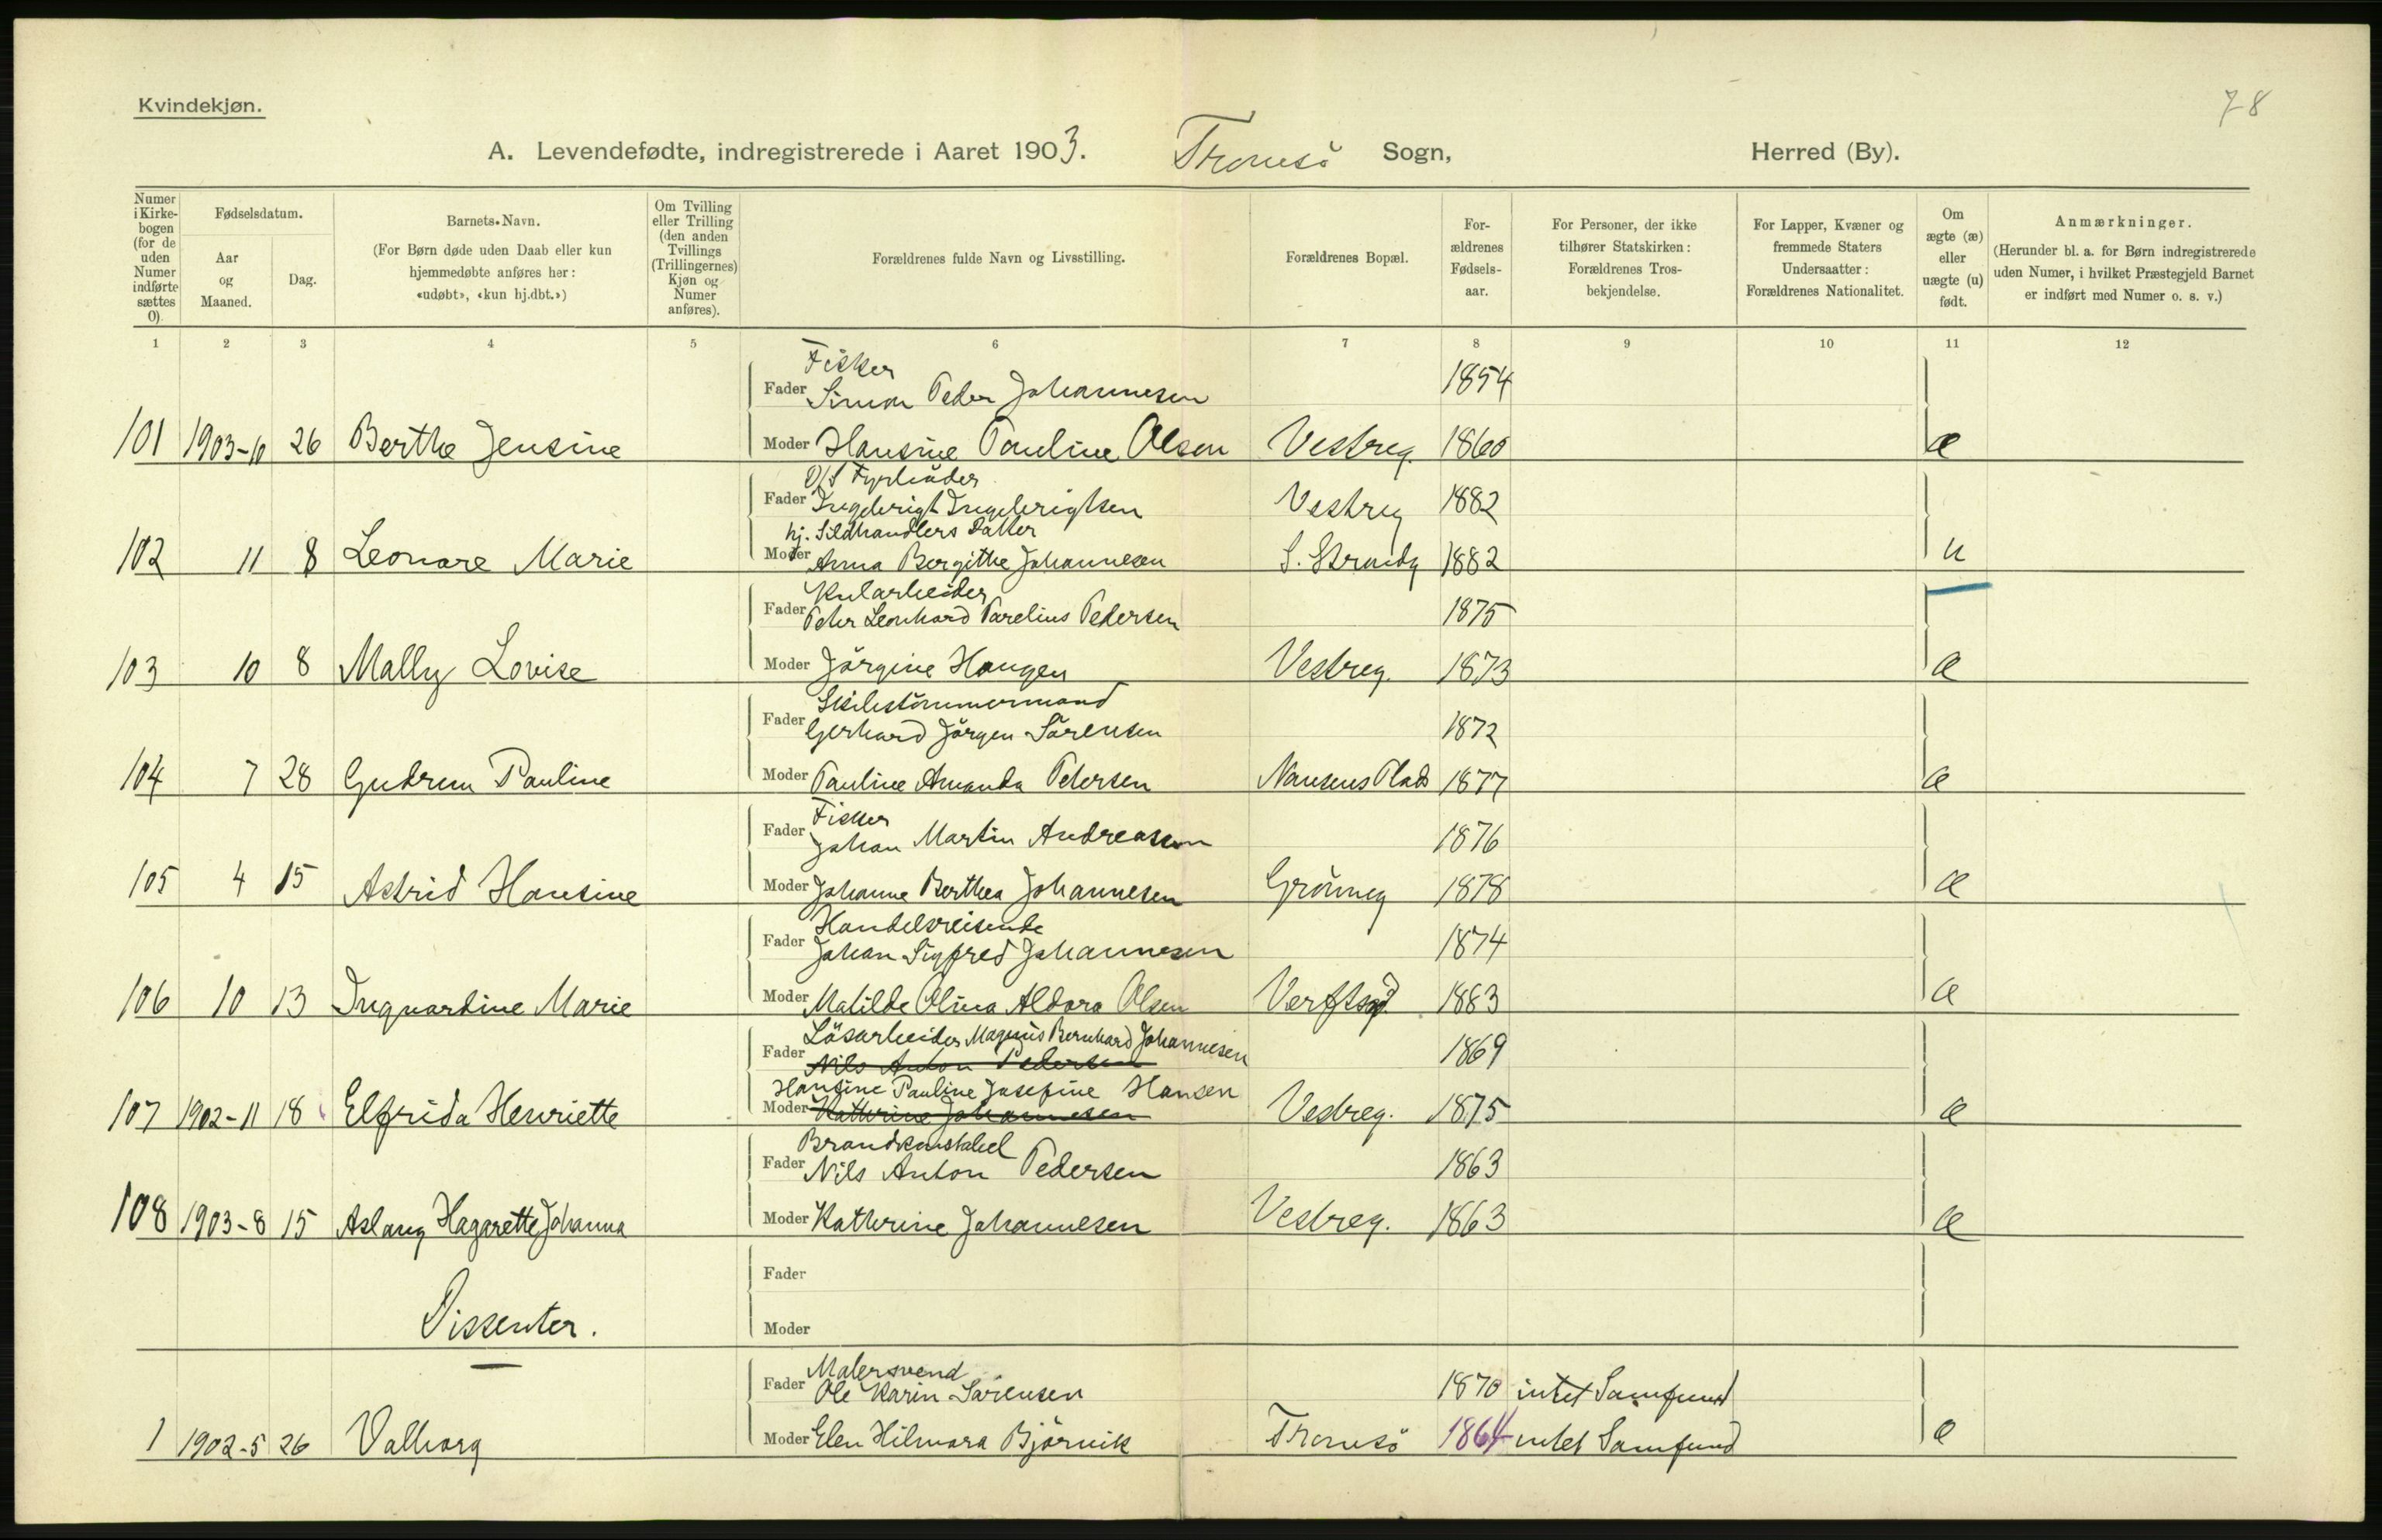 Kvindekjøn.
78
A. Levendefødte, indregistrerede i Aaret 1903. Tromsö Sogn, Herred (By).
Numer i Kirke-bogen (for de uden Numer indførte sættes 0).
Fødselsdatum.
Aar og Maaned.
Dag.
Barnets Navn.
(For Børn døde uden Daab eller kun hjemmedøbte anføres her: «udøbt», «kun hj.dbt.»)
Om Tvilling eller Trilling (den anden Tvillings (Trillingernes) Kjøn og Numer anføres).
Forældrenes fulde Navn og Livsstilling.
Forældrenes Bopæl.
For-ældrenes Fødsels-aar.
For Personer, der ikke tilhører Statskirken: Forældrenes Tros-bekjendelse.
For Lapper, Kvæner og fremmede Staters Undersaatter: Forældrenes Nationalitet.
Om ægte (æ) eller uægte (u) født.
Anmærkninger.
(Herunder bl. a. for Børn indregistrerede uden Numer, i hvilket Præstegjeld Barnet er indført med Numer o. s. v.)
1 2 3 4 5 6 7 8 9 10 11 12
Fisker
Fader Simon Peder Johannesen 1854
101 1903-10 26 Berthe Jensine Moder Hansine Pauline Olsen Vestreg. 1860 æ
D/S Fyrböder
Fader Ingebrigt Ingebrigtsen Vestreg 1882
hj. Sildhandlers Datter
102 11 8 Leonore Marie Moder Anna Bergithe Johannesen S. Strandg 1882 u
Kularbeider
Fader Peter Leonhard Parelius Pedersen 1875
103 10 8 Mally Lovise Moder Jörgine Haugen Vestreg. 1873 æ
Skibstömmermand
Fader Gerhard Jörgen Sörensen 1872
104 7 28 Gudrun Pauline Moder Pauline Amanda Petersen Nansens Plads 1877 æ
Fisker
Fader Johan Martin Andreassen 1876
105 4 15 Astrid Hansine Moder Johanne Berthea Johannesen Grönneg 1878 æ
Handelsreisende
Fader Johan Sigfred Johannesen 1874
106 10 13 Ingvardine Marie Moder Matilde Olina Aldora Olsen Verftsg. 1883 æ
Lösarbeider Magnus Bernhard Johannesen
Fader Nils Anton Pedersen 1869
Hansine Pauline Josefine Hansen
107 1902-11 18 Elfrida Henriette Moder Kathrine Johannesen Vestreg. 1875 æ
Brandkonstabel
Fader Nils Anton Pedersen 1863
108 1903-8 15 Aslaug Hagarette Johanna Moder Kathrine Johannesen Vestreg. 1863 æ
Fader
Dissenter. Moder
Malersvend
Fader Ole Karin Sörensen 1870 intet Samfund
1 1902-5 26 Valborg Moder Elen Hilmara Björnvik Tromsö 1864 intet Samfund æ